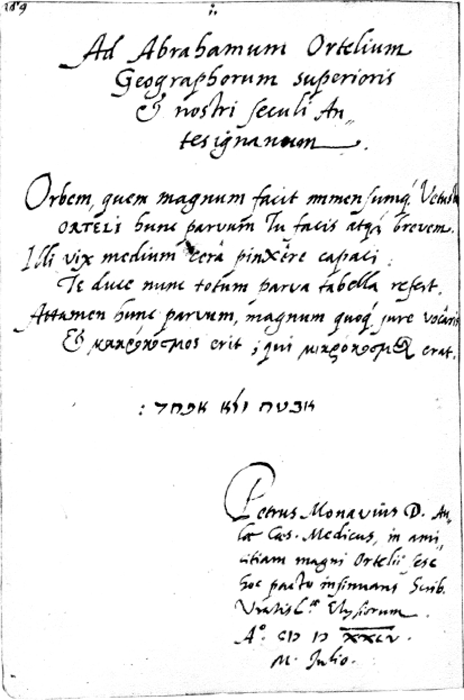 Ad Abrahamum Ortelium
Geographorum superioris
& nostri seculi An„
tesignanum.
Orbem, quem magnum facit immensumq́; Vetustas
ORTELI hunc parvum Tu facis atq́; brevem.
Illi vix medium cerâ pinxêre capaci:
Te duce nunc totum parva tabella refert.
Attamen hunc parvum, magnum quoq́; jure vocâris
Et μακρόκοσμος erit; qui μικρόκοσμος erat.
אבטח ולא אפחד :
Petrus Monavius D. Au„
læ Cæs. Medicus, in ami„
citiam magni Ortelii sese
hoc pacto insinuans Scrib.
Vratisl.æ Elysiorum.
A.° CIↃ IↃ XXCV.
M. Julio.